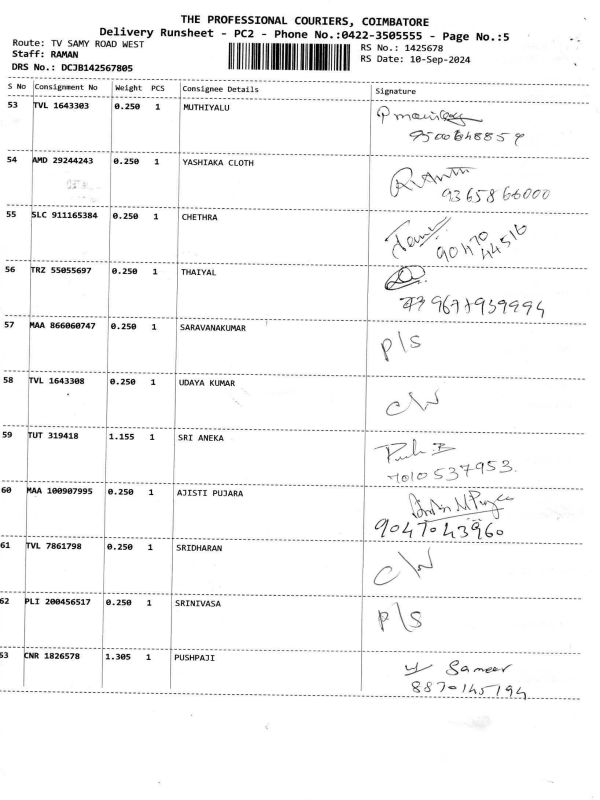 THE PROFESSIONAL COURIERS, COIMBATORE
Delivery Runsheet - PC2 - Phone No.:0422-3505555 - Page No.:5
Route: TV SAMY ROAD WEST RS No.: 1425678
Staff: RAMAN RS Date: 10-Sep-2024
DRS No.: DCJB142567805
S No Consignment No Weight PCS Consignee Details Signature
53 TVL 1643303 0.250 1 MUTHIYALU
54 AMD 29244243 0.250 1 YASHIAKA CLOTH
9365866000
55 SLC 911165384 0.250 1 CHETHRA
90470
44516
56 TRZ 55055697 0.250 1 THAIYAL
57 MAA 866060747 0.250 1 SARAVANAKUMAR
P/S
58 TVL 1643308 0.250 1 UDAYA KUMAR
C/W
59 TUT 319418 1.155 1 SRI ANEKA
7010537953
60 MAA 100907995 0.250 1 AJISTI PUJARA
9047043960
61 TVL 7861798 0.250 1 SRIDHARAN
C/W
62 PLI 200456517 0.250 1 SRINIVASA
P/S
63 CNR 1826578 1.305 1 PUSHPAJI
Sameer
8870145194